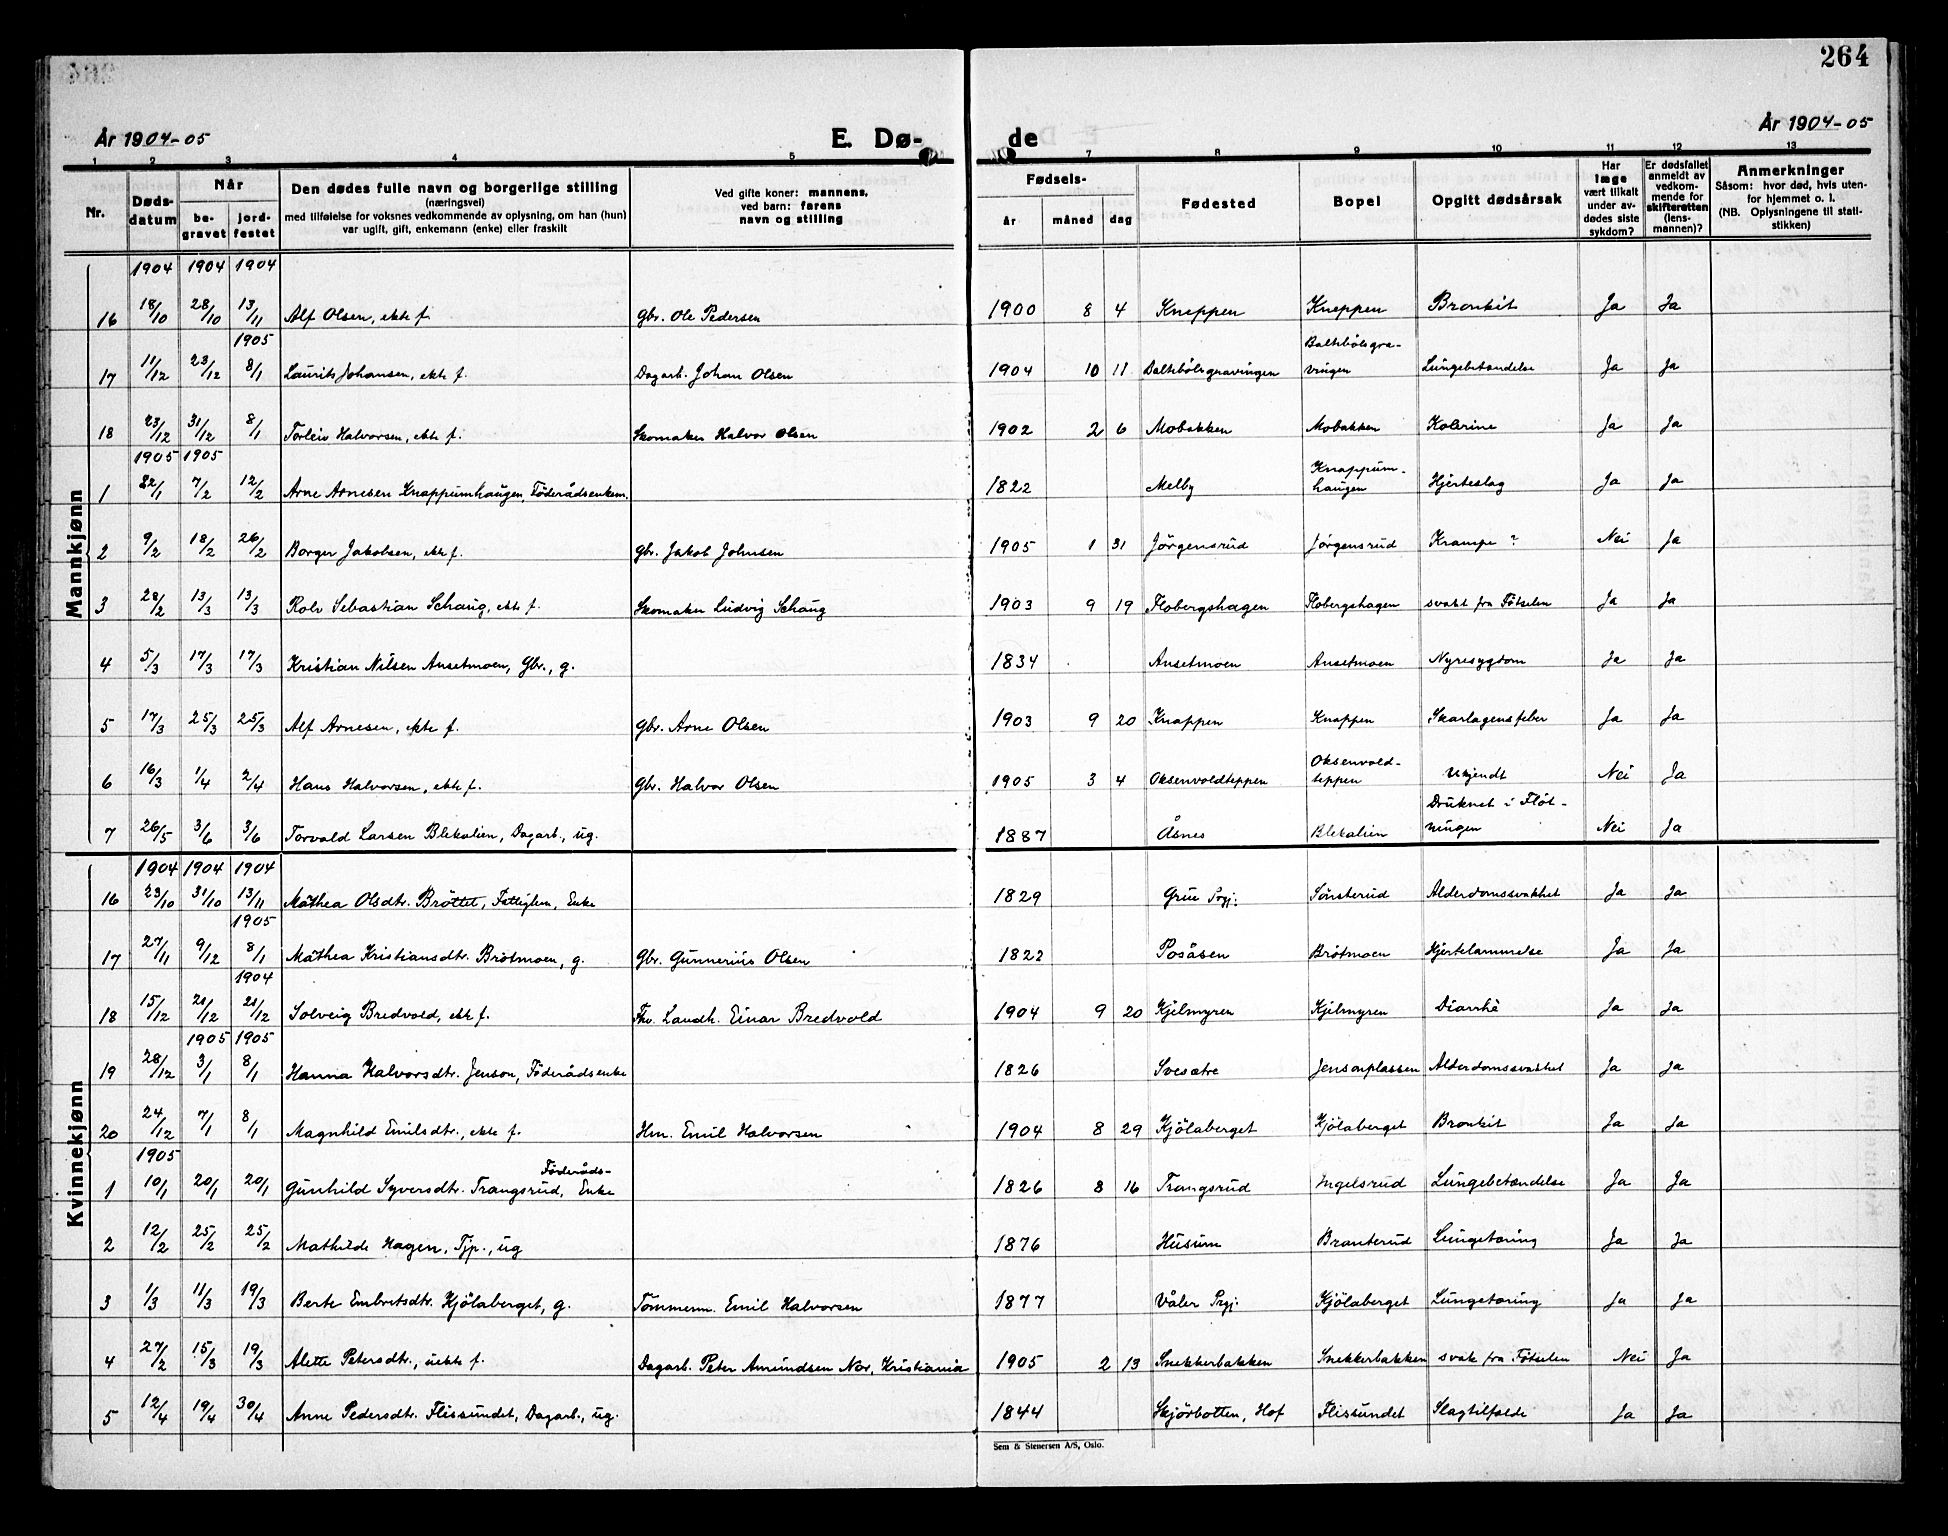 264
År 1904-05 E. Dø- de År 1904-05
1 2 3 4 5 7 8 9 10 11 12 13
Nr. Døds-datum Når be-gravet jord-festet Den dødes fulle navn og borgerlige stilling (næringsvei) med tilføielse for voksnes vedkommende av oplysning, om han (hun) var ugift, gift, enkemann (enke) eller fraskilt Ved gifte koner: mannens, ved barn: farens navn og stilling Fødsels- år måned dag Fødested Bopel Opgitt dødsårsak Har læge vært tilkalt under av-dødes siste sykdom? Er dødsfallet anmeldt av vedkom-mende for skifteretten (lens-mannen)? Anmerkninger Såsom: hvor død, hvis uten-for hjemmet o. l. (NB. Oplysningene til stati-stikken)
Mannkjønn
1904 1904 1904
16 18/10 28/10 13/11 Alf Olsen, ekte f. Gbr. Ole Pedersen 1900 8 4 Kneppen Kneppen Bronkit Ja Ja
1905
17 11/12 23/12 8/1 Laurits Johansen, ekte f. Dagarb. Johan Olsen 1904 10 11 Baltebölsgravingen Baltebölsgra-vingen Lungebetendelse Ja Ja
18 23/12 31/12 8/1 Torleiv Halvorsen, ekte f. Skomaker Halvor Olsen 1902 2 6 Mobakken Mobakken Kolerine Ja Ja
1905 1905
1 22/1 7/2 12/2 Arne Arnesen Knappumhaugen, Föderådsenkem. 1822 Melby Knappum-haugen Hjerteslag Ja Ja
2 9/2 18/2 26/2 Borger Jakobsen, ekte f. Gbr. Jakob Johnsen 1905 1 31 Jörgensrud Jörgensrud Krampe ? Nei Ja
3 28/2 13/3 13/3 Rolv Sebastian Schaug, ekte f. Skomaker Ludvig Schaug 1903 9 19 Flobergshagen Flobergshagen svakt fra Fötselen Ja Ja
4 5/3 17/3 17/3 Kristian Nilsen Ansetmoen, Gbr., g. 1834 Ansetmoen Ansetmoen Nyresygdom Ja Ja
5 17/3 25/3 25/3 Alf Arnesen, ekte f. Gbr. Arne Olsen 1903 9 20 Knappen Knappen Skarlagensfeber Ja Ja
6 16/3 1/4 2/4 Hans Halvorsen, ekte f. Gbr. Halvor Olsen 1905 3 4 Oksenvoldteppen Oksenvold-teppen Ukjendt Nei Ja
7 26/5 3/6 3/6 Torvald Larsen Blekalien, Dagarb., ug. 1887 Åsnes Blekalien Druknet i Flöt-ningen Nei Ja
Kvinnekjønn
1904 1904 1904
16 23/10 31/10 13/11 Mathea Olsdtr. Bröttet, Fattiglem, Enke 1829 Grue Prgj. Sönsterud Alderdomssvakhet Ja Ja
1905
17 27/11 9/12 8/1 Mathea Kristiansdtr. Brötmoen, g. Gbr. Gunnerius Olsen 1822 Posåsen Brötmoen Hjertelammelse Ja Ja
1904
18 15/12 21/12 21/12 Solveig Bredvold, ekte f. Fhv. Landh. Einar Bredvold 1904 9 20 Kjelmyren Kjelmyren Diarrhé Ja Ja
1905 1905
19 28/12 3/1 8/1 Hanna Halvorsdtr. Jenson, Föderådsenke 1826 Svesætre Jensonplassen Alderdomssvakhet Ja Ja
20 24/12 7/1 8/1 Magnhild Emilsdtr., ekte f. Hm. Emil Halvorsen 1904 8 29 Kjölaberget Kjölaberget Bronkit Ja Ja
1905
1 10/1 20/1 20/1 Gunhild Syversdtr. Trangsrud, Föderåds-Enke 1826 8 16 Trangsrud Ingelsrud Lungebetændelse Ja Ja
2 12/2 25/2 25/2 Mathilde Hagen, Tjp., ug 1876 Husum Branterud Lungetæring Ja Ja
3 1/3 11/3 19/3 Berte Embretsdtr. Kjölaberget, g. Tömmerm. Emil Halvorsen 1877 Våler Prgj. Kjölaberget Lungetæring Ja Ja
4 27/2 15/3 19/3 Alette Petersdtr., uekte f. Dagarb. Peter Amundsen Nor, Kristiania 1905 2 13 Snekkerbakken Snekkerbakken svak fra Fötselen Nei Ja
5 12/4 19/4 30/4 Anne Pedersdtr. Flissundet, Dagarb., ug. 1844 Skjörbotten, Hof Flissundet Slagtilfælde Ja Ja
Sem & Stenersen A/S, Oslo.